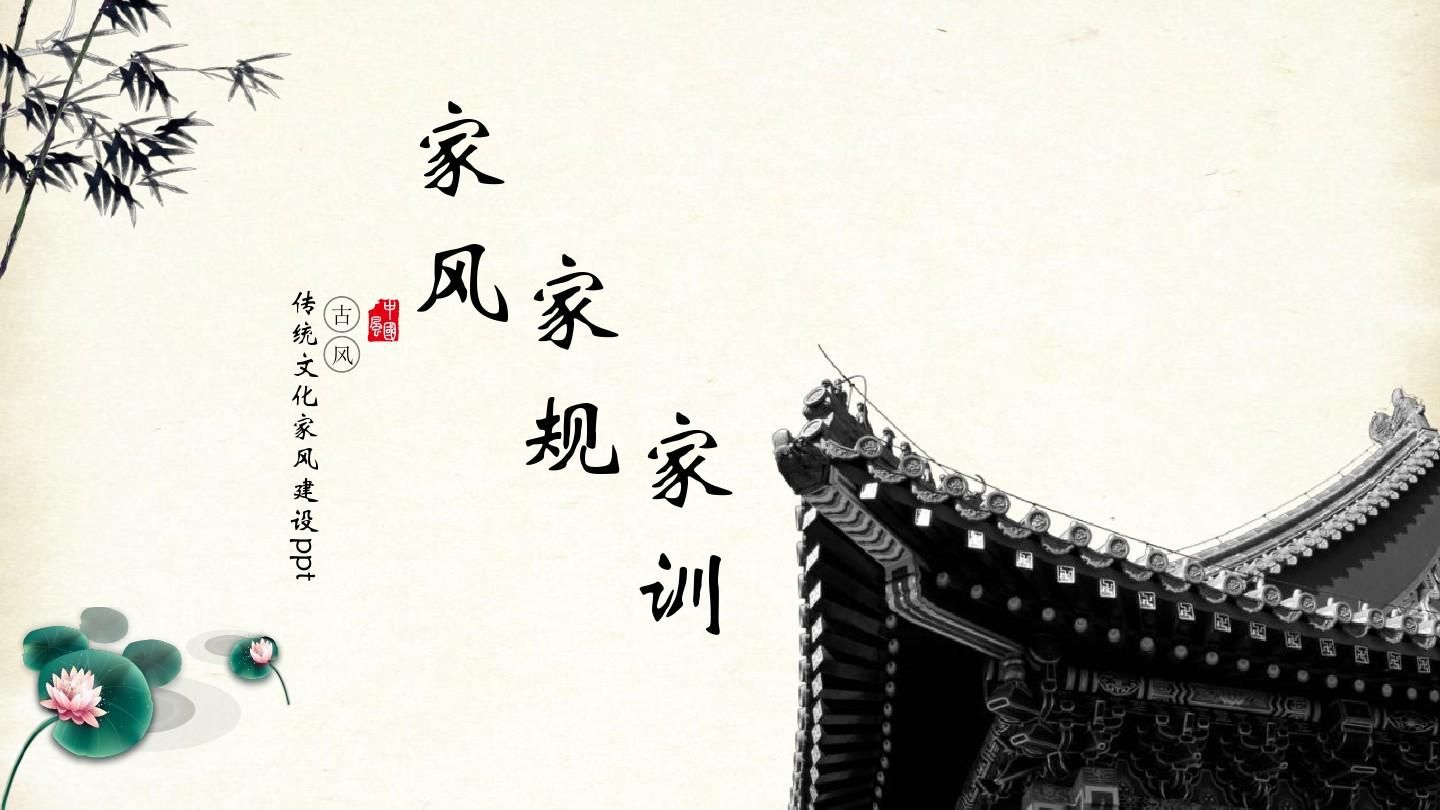 家风
家规
家训
中國風
古风
传统文化家风建设ppt